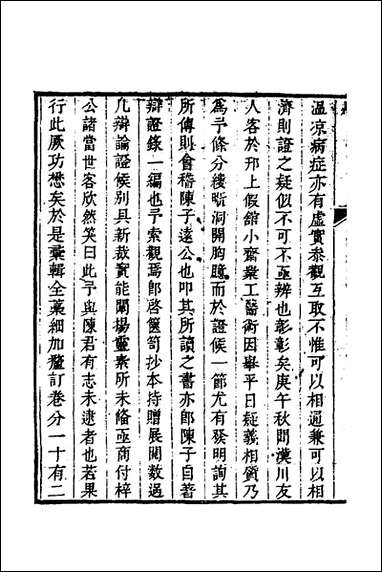 溫凉病症亦有虛實叅觀互取不惟可以相通兼可以相
濟則證之疑似不可不亟辨也彰彰矣庚午秋間漢川友
人客於邗上假舘小齋業工醫術因舉平日疑義相質乃
爲予條分縷晰洞開胸臆而於證候一節尤有發明詢其
所傳則會稽陳子遠公也叩其所讀之書亦卽陳子自著
辯證錄一編也予索觀焉卽啓篋笥抄本持贈展閱數過
凡辯論證候别具新裁實能闡揚靈素所未備亟商付梓
公諸當世客欣然笑曰此予與陳君有志未逮者也若果
行此厥功懋矣於是彙輯全藁細加釐訂卷分一十有二